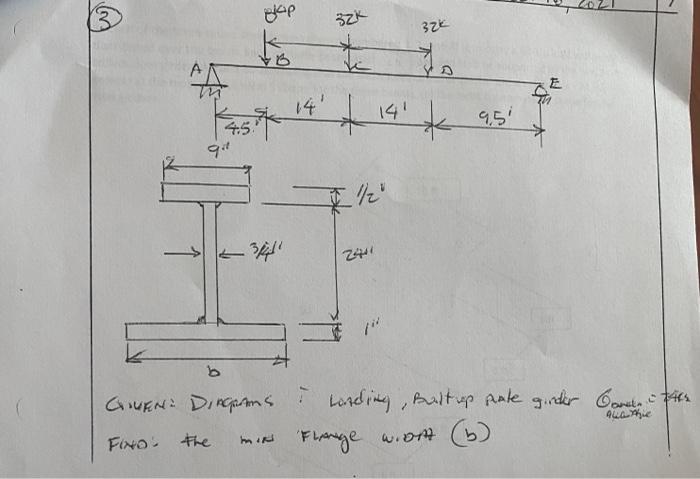 2021
3
32k
32k
A
B
C
D
E
4.5'
14'
14'
9.5'
9"
1/2"
3/4"
24"
1"
b
GIVEN: DIAGRAMS : Loading, Built up Plate girder
FIND: the MIN FLANGE WIDTH (b)